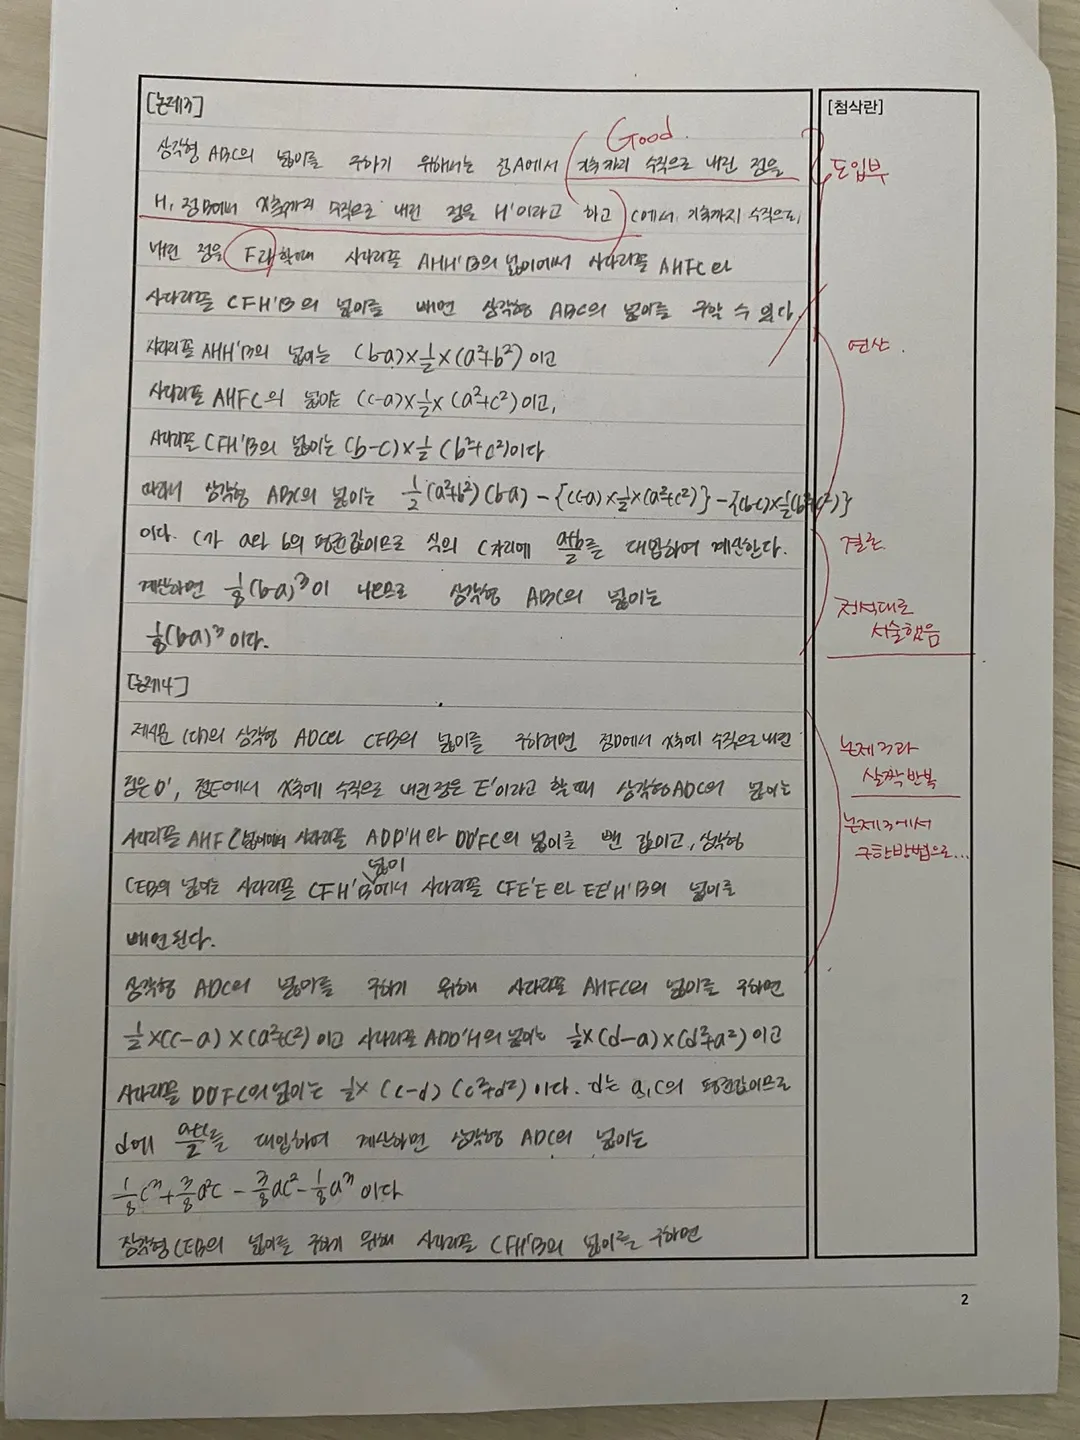 [논제3]
[첨삭란]
Good.
삼각형 ABC의 넓이를 구하기 위해서는 점A에서 x축까지 수직으로 내린 점을
도입부
H, 점B에서 x축까지 수직으로 내린 점을 H'이라고 하고 C에서 x축까지 수직으로
내린 점을 F라 할때 사다리꼴 AHH'B의 넓이에서 사다리꼴 AHFC와
사다리꼴 CFH'B의 넓이를 빼면 삼각형 ABC의 넓이를 구할 수 있다.
연산.
사다리꼴 AHH'B의 넓이는 (b-a)×½×(a²+b²) 이고
사다리꼴 AHFC의 넓이는 (c-a)×½×(a²+c²)이고,
사다리꼴 CFH'B의 넓이는 (b-c)×½(b²+c²)이다
따라서 삼각형 ABC의 넓이는 ½(a²+b²)(b-a) - {(c-a)×½×(a²+c²)} - {(b-c)×½(b²+c²)}
이다. C가 a와 b의 평균값이므로 식의 C자리에 (a+b)/2를 대입하여 계산한다.
결론
계산하면 ⅛(b-a)³이 나오므로 삼각형 ABC의 넓이는
⅛(b-a)³이다.
정석대로
서술했음
[논제4]
제시문 (다)의 삼각형 ADC와 CEB의 넓이를 구하려면 점D에서 x축에 수직으로 내린
점은 D', 점E에서 x축에 수직으로 내린 점은 E'이라고 할 때 삼각형 ADC의 넓이는
논제3과
살짝 반복
사다리꼴 AHFC넓이에서 사다리꼴 ADD'H와 DD'FC의 넓이를 뺀 값이고, 삼각형
논제3에서
구한방법으로...
CEB의 넓이는 사다리꼴 CFH'B넓이에서 사다리꼴 CFE'E와 EE'H'B의 넓이를
빼면 된다.
삼각형 ADC의 넓이를 구하기 위해 사다리꼴 AHFC의 넓이를 구하면
½×(c-a)×(a²+c²)이고 사다리꼴 ADD'H의 넓이는 ½×(d-a)×(d²+a²)이고
사다리꼴 DD'FC의 넓이는 ½×(c-d)(c²+d²)이다. d는 a,c의 평균값이므로
d에 (a+c)/2를 대입하여 계산하면 삼각형 ADC의 넓이는
⅛c³+⅜a²c-⅜ac²-⅛a³이다
삼각형 CEB의 넓이를 구하기 위해 사다리꼴 CFH'B의 넓이를 구하면
2